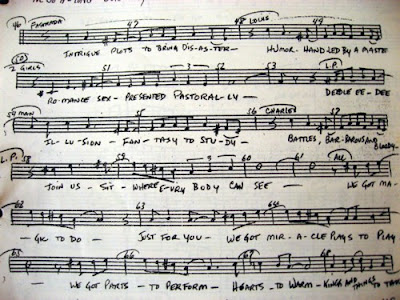 46 PASTRADA 47 48 LOCKS 49
INTRIGUE PLOTS TO BRING DIS-AS-TER- HUMOR- HAND-LED BY A MASTE
50 2 GIRLS 51 52 3 53 L.P.
RO-MANCE SEX- PRESENTED PASTORAL-LY- DEEBLE EE-DEE
54 MAN 55 56 CHARLES 57
IL-LU-SION- FAN-TASY TO STU-DY- BATTLES, BAR-BAROUS AND BLOODY-
L.P. 58 59 60 3 61 ALL
JOIN US- SIT- WHERE E-VRY BODY CAN SEE- WE GOT MA-
62 63 64
-GIC TO DO- JUST FOR YOU- WE GOT MIR-A-CLE PLAYS TO PLAY
65 66 67 68
-WE GOT PARTS- TO PERFORM- HEARTS-TO WARM-KINGS AND THINGS TO